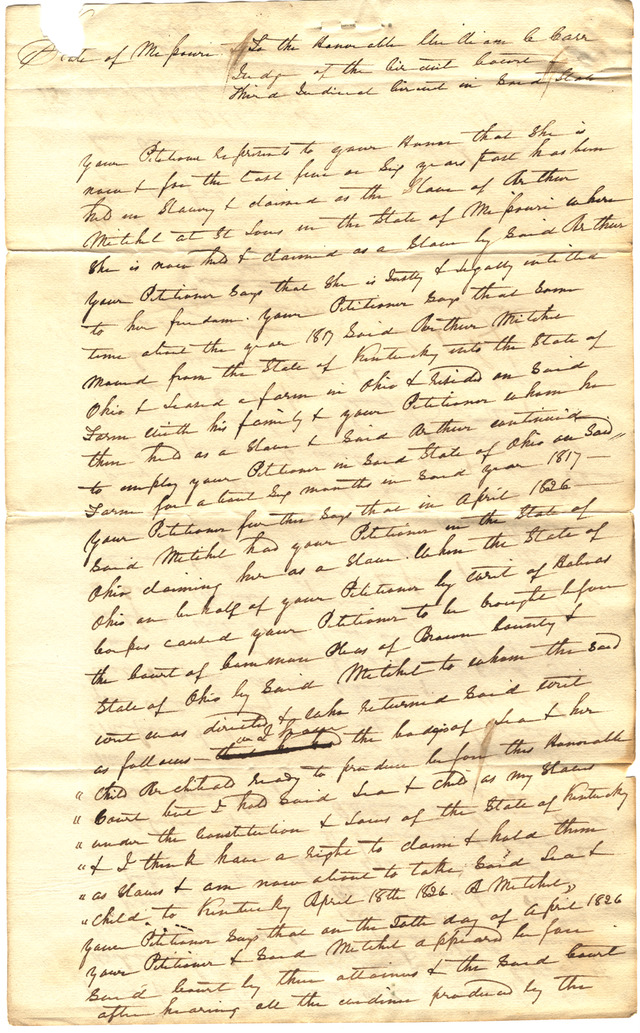 State of Missouri To the Honorable William C Carr
Judge of the Circuit Court
third Judicial Circuit in Said State
your Petitioner represents to your Honor that She is
now & for the last five or Six years past has been
held in Slavery & claimed as the Slave of Arthur
Mitchel at St Louis in the State of Missouri where
She is now held & claimed as a Slave by Said Arthur
your Petitioner Says that She is Justly & legally intitled
to her freedom. your Petitioner Says that Some
time about the year 1817 Said Arthur Mitchel
moved from the State of Kentucky into the State of
Ohio & Leased a farm in Ohio & resided on Said
Farm with his family & your Petitioner whom he
then held as a Slave & Said Arthur continued
to employ your Petitioner in Said State of Ohio on Said
Farm for about Six months in Said year 1817 —
your Petitioner further Says that in April 1826 —
Said Mitchel had your Petitioner in the State of
Ohio claiming her as a Slave. When the State of
Ohio on behalf of your Petitioner by writ of Habeas
Corpus caused your Petitioner to be brought before
the Court of Common Pleas of Brown County &
State of Ohio by Said Mitchel to whom the Said
writ was directed & who returned Said writ
as follows — the bodys of Lea & her
" Child ready to produce before this Honorable
" Court but I hold Said Lea & Child as my Slaves
" under the Constitution & Laws of the State of Kentucky
" & I think have a right to claim & hold them
" as Slaves & am now about to take, Said Lea &
" Child to Kentucky April 18th 1826. A Mitchel"
your Petitioner Says that on the day of April 1826
your Petitioner & Said Mitchel appeared before
Said Court by their attornies & the Said Court
after hearing all the evidence produced by the